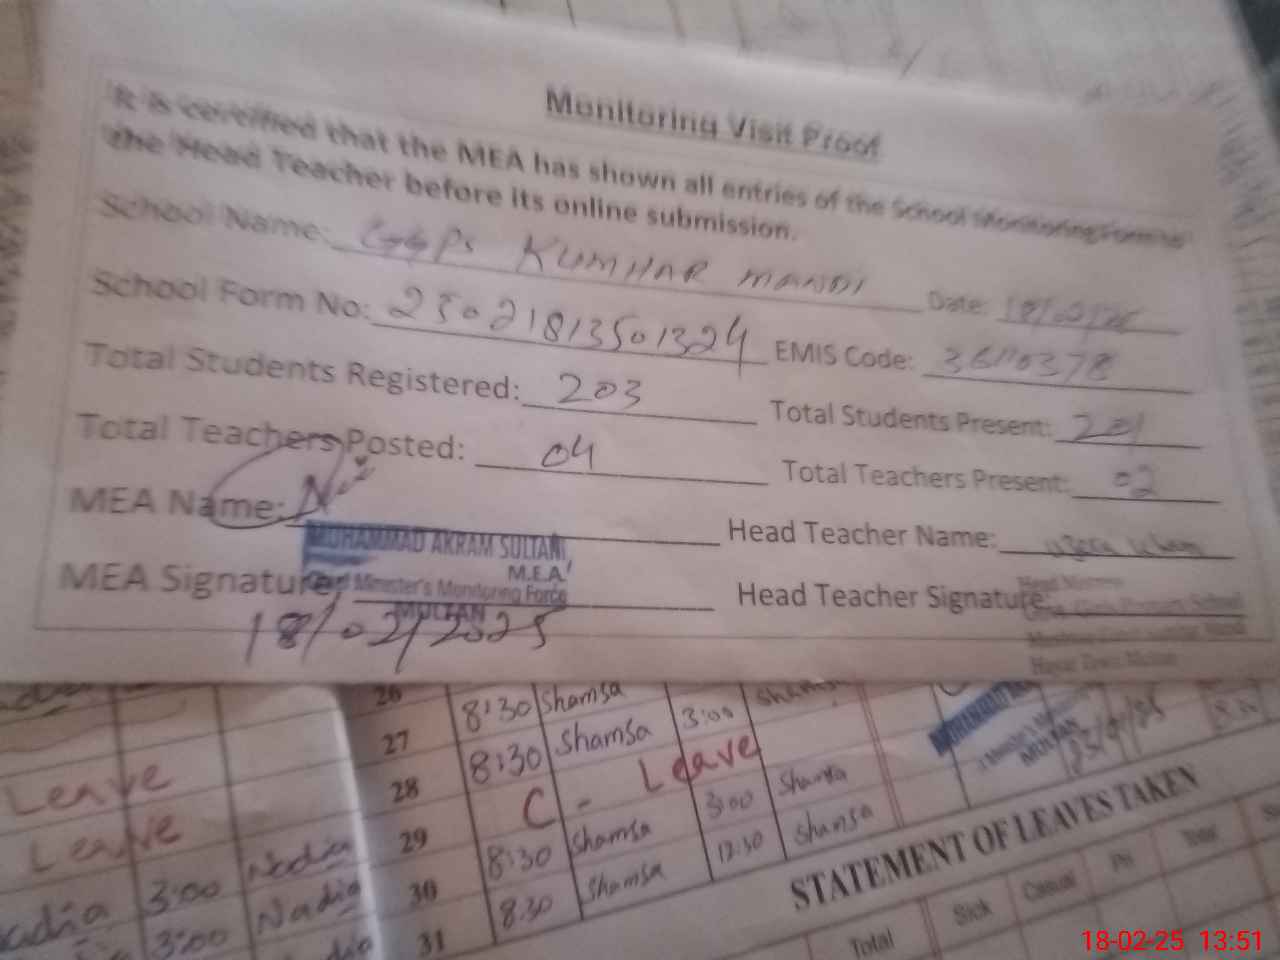 Monitoring Visit Proof
It is certified that the MEA has shown all entries of the School Monitoring Form to
the Head Teacher before its online submission.
School Name: GGPS KUMHAR MANDI Date: 18/02/25
School Form No: 25021813501324 EMIS Code: 36110378
Total Students Registered: 203 Total Students Present: 201
Total Teachers Posted: 04 Total Teachers Present: 02
MEA Name: Head Teacher Name:
MUHAMMAD AKRAM SULTANI
M.E.A
MEA Signature: Minister's Monitoring Force Head Teacher Signature:
MULTAN
18/02/2025
26 8:30 Shamsa Shamsa
27 8:30 Shamsa 3:00
28 C - Leave
29 8:30 Shamsa 3:00 Shamsa
30 8:30 Shamsa 12:30 Shamsa
31
Leave
Leave
3:00 Nadia
3:00 Nadia
MULTAN
STATEMENT OF LEAVES TAKEN
Total Sick Casual Pri Total
18-02-25 13:51